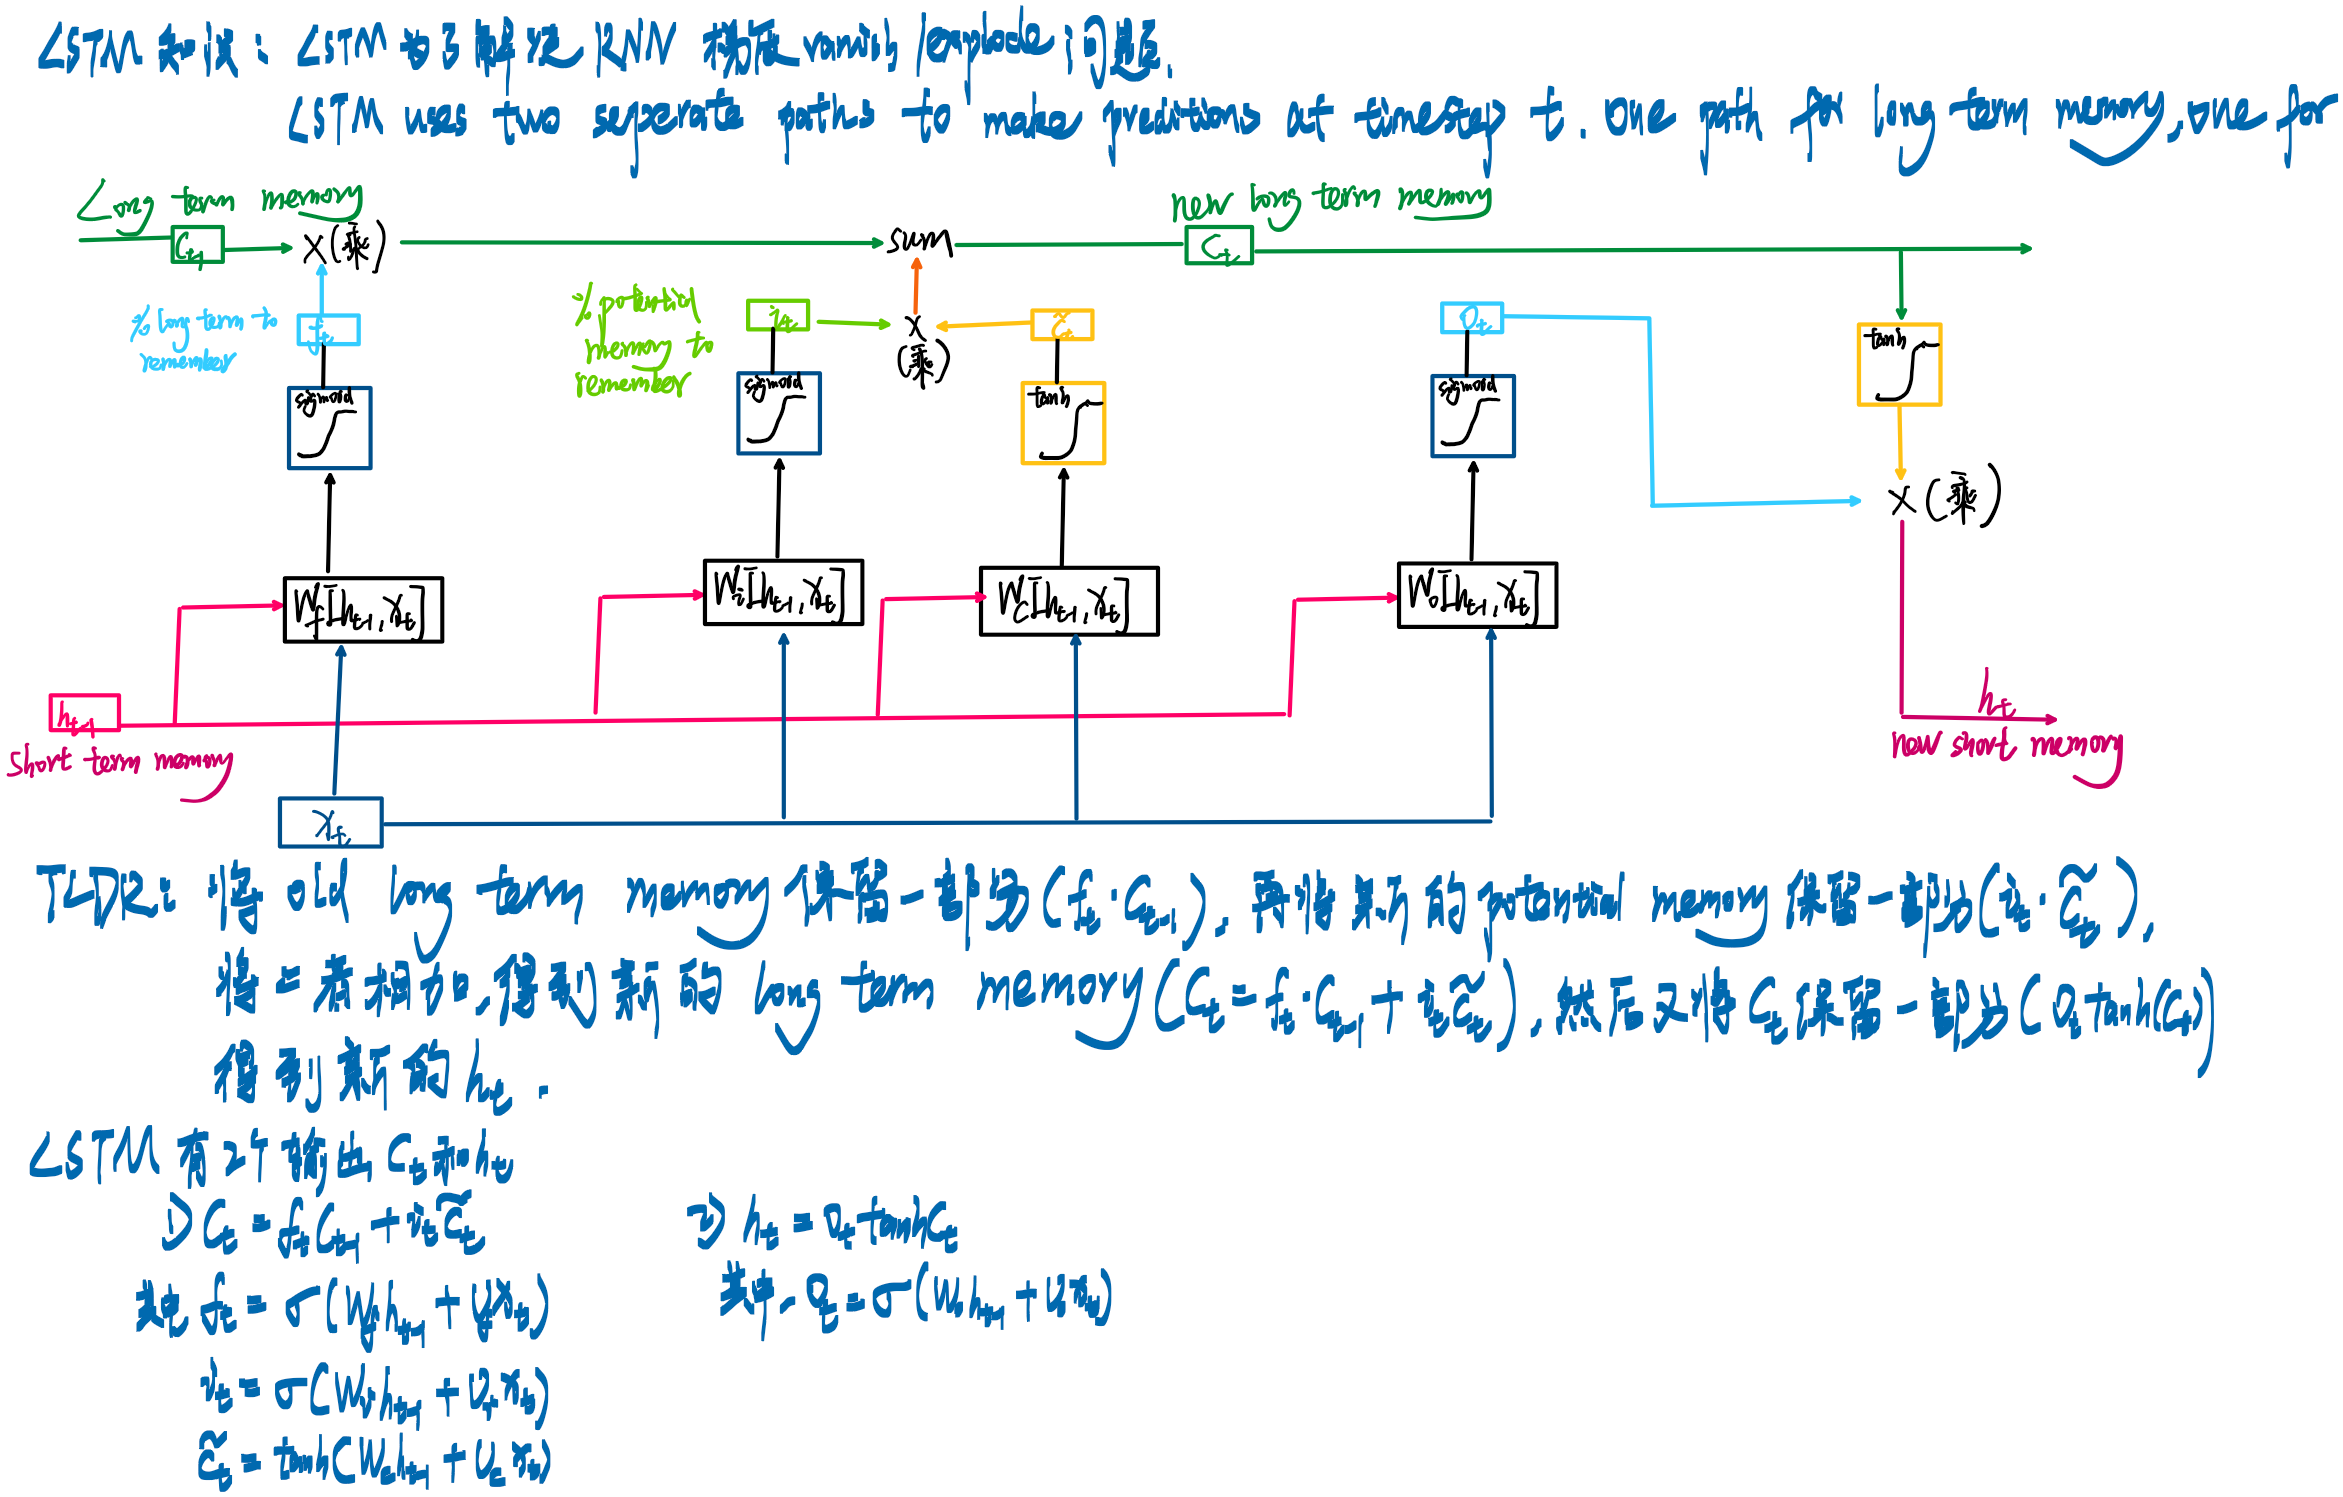 LSTM 知识：LSTM 为了解决 RNN 梯度 vanish/explode 问题.
LSTM uses two seperate paths to make predictions at timestep t. one path for long term memory, one for
Long term memory
new long term memory
C_{t-1}
× (乘)
sum
C_t
% long term to
remember
f_t
% potential
memory to
remember
i_t
×
(乘)
C̃_t
O_t
tanh
sigmoid
sigmoid
tanh
sigmoid
× (乘)
W_f[h_{t-1}, x_t]
W_i[h_{t-1}, x_t]
W_c[h_{t-1}, x_t]
W_o[h_{t-1}, x_t]
h_{t-1}
short term memory
h_t
new short memory
x_t
TLDR：将 old long term memory 保留一部分(f_t · C_{t-1}), 再将新的 potential memory 保留一部分(i_t · C̃_t),
将二者相加,得到新的 long term memory (C_t = f_t · C_{t-1} + i_t C̃_t), 然后又将 C_t 保留一部分 (O_t tanh(C_t))
得到新的 h_t .
LSTM 有2个输出 C_t 和 h_t
1) C_t = f_t C_{t-1} + i_t C̃_t
2) h_t = O_t tanh C_t
其中 f_t = σ(W_f h_{t-1} + U_f x_t)
其中, O_t = σ(W_o h_{t-1} + U_o x_t)
i_t = σ(W_i h_{t-1} + U_i x_t)
C̃_t = tanh(W_c h_{t-1} + U_c x_t)